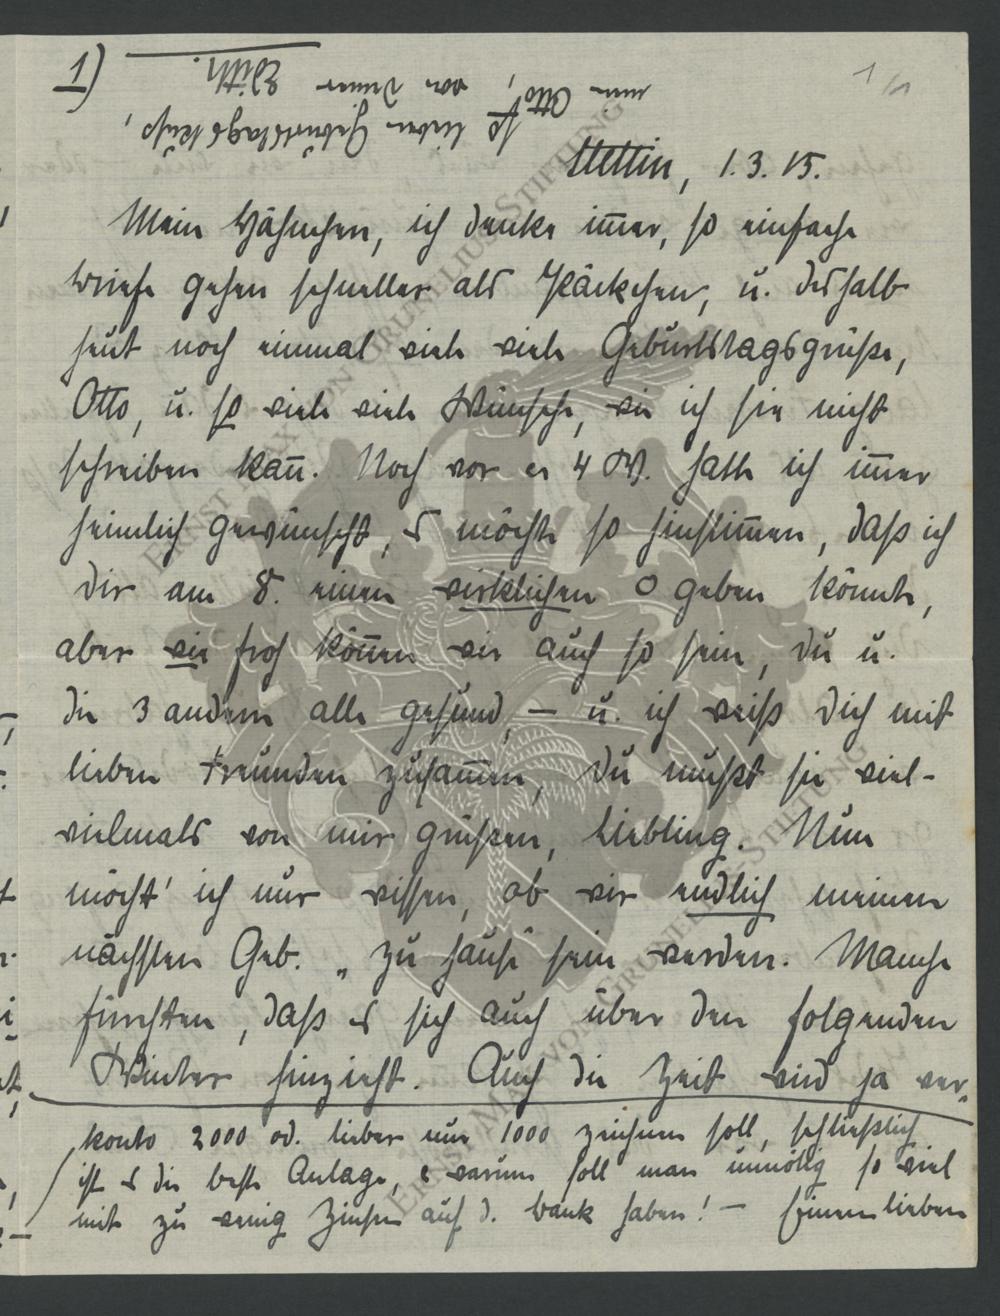 1)
So lieben Geburtstagskuß,
mein Otto, von Deiner
Edith.
1/11
Stettin, 1.3.15.
Mein Hähnchen, ich denke im̄er, so einfache
Briefe gehen schneller als Päckchen, u. deshalb
heut noch einmal viele viele Geburtstagsgrüße,
Otto, u. so viele viele Wünsche, wie ich sie nicht
schreiben kan̄. Noch vor 4 W. hatte ich im̄er
heimlich gewünscht, es möchte so hinstim̄en, daß ich
Dir am 8. einen wirklichen O geben könnte,
aber wie froh kön̄en wir auch so sein, Du u.
die 3 andern alle gesund, – u. ich weiß Dich mit
lieben Freunden zusam̄en, Du mußt sie viel-
vielmals von mir grüßen, Liebling. Nun
möcht' ich nur wissen, ob wir endlich meinen
nächsten Geb. „zu Hause" sein werden. Manche
fürchten, daß es sich auch über den folgenden
Winter hinzieht. Auch die Zeit wird ja ver-
konto 2000 od. lieber nur 1000 zeichnen soll, schließlich
ist es die beste Anlage, warum soll man unnötig so viel
mit zu wenig Zinsen auf d. Bank haben! – Einen lieben
ERNST MAX VON GRUNELIUS-STIFTUNG
ERNST MAX VON GRUNELIUS-STIFTUNG